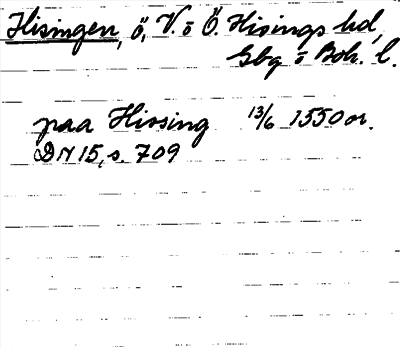 Hisingen, ö, V. o Ö. Hisings hd,
Gbg o Boh. l.
paa Hissing 13/6 1550 or.
DN 15, s. 709